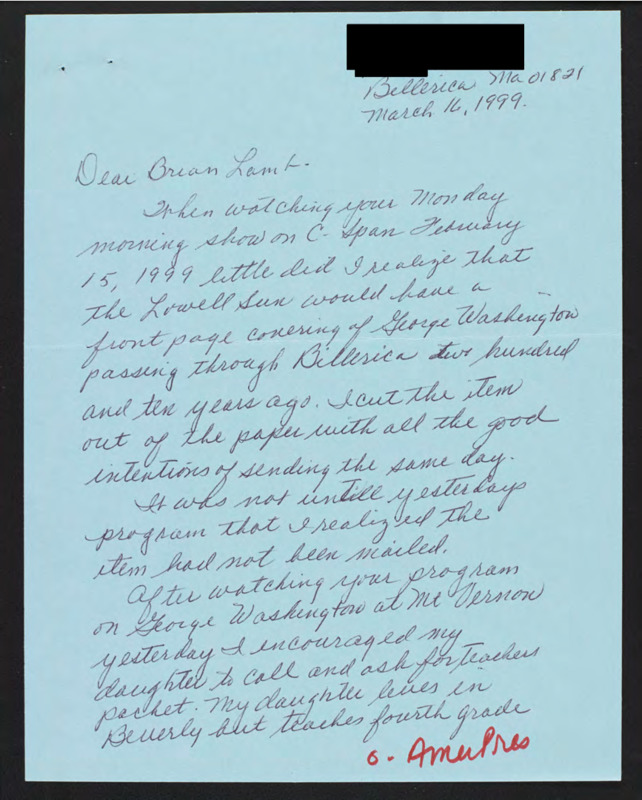 Billerica Ma 01821
March 16, 1999.
Dear Brian Lamb.
When watching your Monday
morning show on C-Span February
15, 1999 little did I realize that
the Lowell Sun would have a
front page covering of George Washington
passing through Billerica two hundred
and ten years ago. I cut the item
out of the paper with all the good
intentions of sending the same day.
It was not untill yesterdays
program that I realized the
item had not been mailed.
After watching your program
on George Washington at Mt Vernon
yesterday I encouraged my
daughter to call and ask for teachers
packet. My daughter lives in
Beverly but teaches fourth grade
o - AmerPres